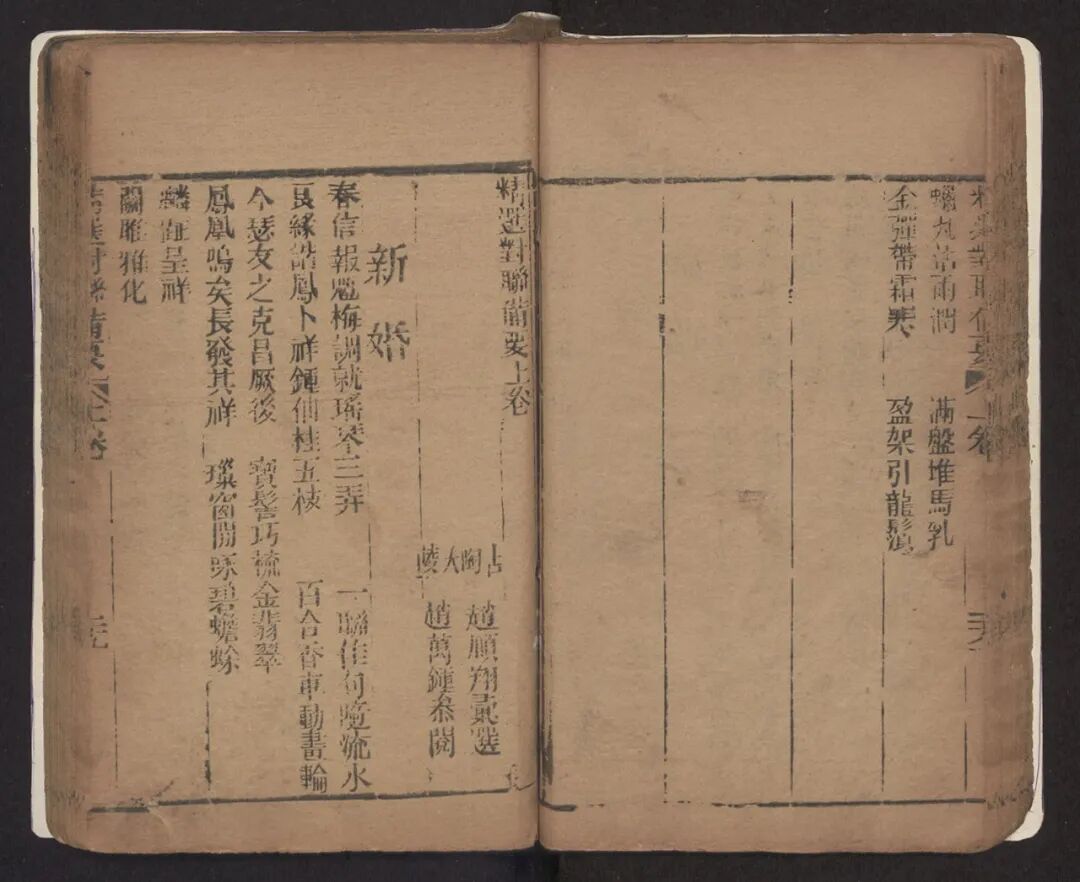 精選對聯備要 上卷
蠟丸沾雨潤 滿盤堆馬乳
金彈帶霜寒 盈架引龍鬚
精選對聯備要上卷
古陶 趙順翔彙選
大陵 趙萬鍾叅閱
新婚
春信報魁梅調就瑤琴三弄 一聯佳句隨流水
良緣諧鳳卜祥鍾仙桂五枝 百合香車動畫輪
今瑟友之克昌厥後 寶髻巧梳金翡翠
鳳凰鳴矣長發其祥 璨窗開琢碧蟾蜍
麟趾呈祥
關雎雅化
上卷